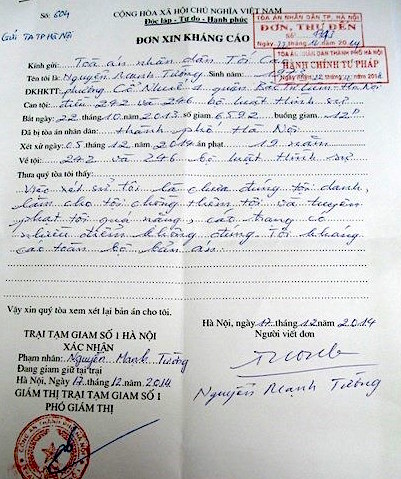 Số: 604
CỘNG HÒA XÃ HỘI CHỦ NGHĨA VIỆT NAM
Độc lập - Tự do - Hạnh phúc
Gửi TATP Hà Nội
TÒA ÁN NHÂN DÂN TP. HÀ NỘI
ĐƠN, THƯ ĐẾN
Số:
Ngày 22 tháng 12 năm 2014
ĐƠN XIN KHÁNG CÁO
Kính gửi: Toà án nhân dân Tối Cao
TÒA ÁN NHÂN DÂN THÀNH PHỐ HÀ NỘI
HÀNH CHÍNH TƯ PHÁP
Tên tôi là: Nguyễn Mạnh Tường Sinh năm
ĐKHKTT: phường Cổ Nhuế 1 quận Bắc Từ Liêm Hà Nội
Can tội: điều 242 và 246 bộ luật hình sự
Bắt ngày 22 tháng 10 2013 số giam 6592 buồng giam
Đã bị tòa án nhân dân: thành phố Hà Nội
Xét xử ngày 05 tháng 12 năm 2014 án phạt 19 năm
Về tội: 242 và 246 bộ luật hình sự
Thưa quý tòa tôi thấy
Việc xét sử tôi là chưa đúng tội danh,
làm cho tôi chồng thêm tội và tuyên
phạt tôi quá nặng, cáo trạng có
nhiều điểm không đúng. Tôi kháng
cáo toàn bộ bản án.
Vậy xin quý tòa xem xét lại bản án cho tôi.
TRẠI TẠM GIAM SỐ 1 HÀ NỘI
XÁC NHẬN
Phạm nhân: Nguyễn Mạnh Tường
Đang giam giữ tại trại
Hà Nội, Ngày 17 tháng 12 năm 2014
GIÁM THỊ TRẠI TẠM GIAM SỐ 1
PHÓ GIÁM THỊ
Hà Nội, ngày 17 tháng 12 năm 2014
Người viết đơn
Nguyễn Mạnh Tường